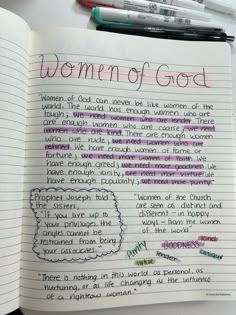 Women of God
"Women of God can never be like women of the
world. The world has enough women who are
tough; we need women who are tender. There
are enough women who are coarse; we need
women who are kind. There are enough women
who are rude; we need women who are
refined. We have enough women of fame or
fortune; we need more women of faith. We
have enough greed; we need more goodness. We
have enough vanity; we need more virtue. We
have enough popularity; we need more purity."
Prophet Joseph told
the sisters,
"If you live up to
your privileges, the
angels cannot be
restrained from being
your associates."
"Women of the Church
are seen as distinct and
different - in happy
ways - from the women
of the world"
Purity
GOODNESS
virtue
tender
"There is nothing in this world as personal, as
nurturing, or as life changing as the influence
of a righteous woman."